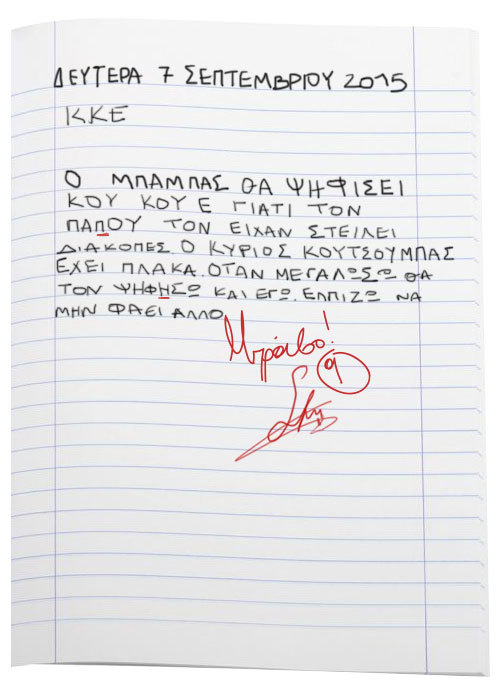 ΔΕΥΤΕΡΑ 7 ΣΕΠΤΕΜΒΡΙΟΥ 2015
ΚΚΕ
Ο ΜΠΑΜΠΑΣ ΘΑ ΨΗΦΙΣΕΙ
ΚΟΥ ΚΟΥ Ε ΓΙΑΤΙ ΤΟΝ
ΠΑΠΟΥ ΤΟΝ ΕΙΧΑΝ ΣΤΕΙΛΕΙ
ΔΙΑΚΟΠΕΣ. Ο ΚΥΡΙΟΣ ΚΟΥΤΣΟΥΜΠΑΣ
ΕΧΕΙ ΠΛΑΚΑ. ΟΤΑΝ ΜΕΓΑΛΩΣΩ ΘΑ
ΤΟΝ ΨΗΦΗΣΩ ΚΑΙ ΕΓΩ. ΕΛΠΙΖΩ ΝΑ
ΜΗΝ ΦΑΕΙ ΑΛΛΟ
Μπράβο!
9